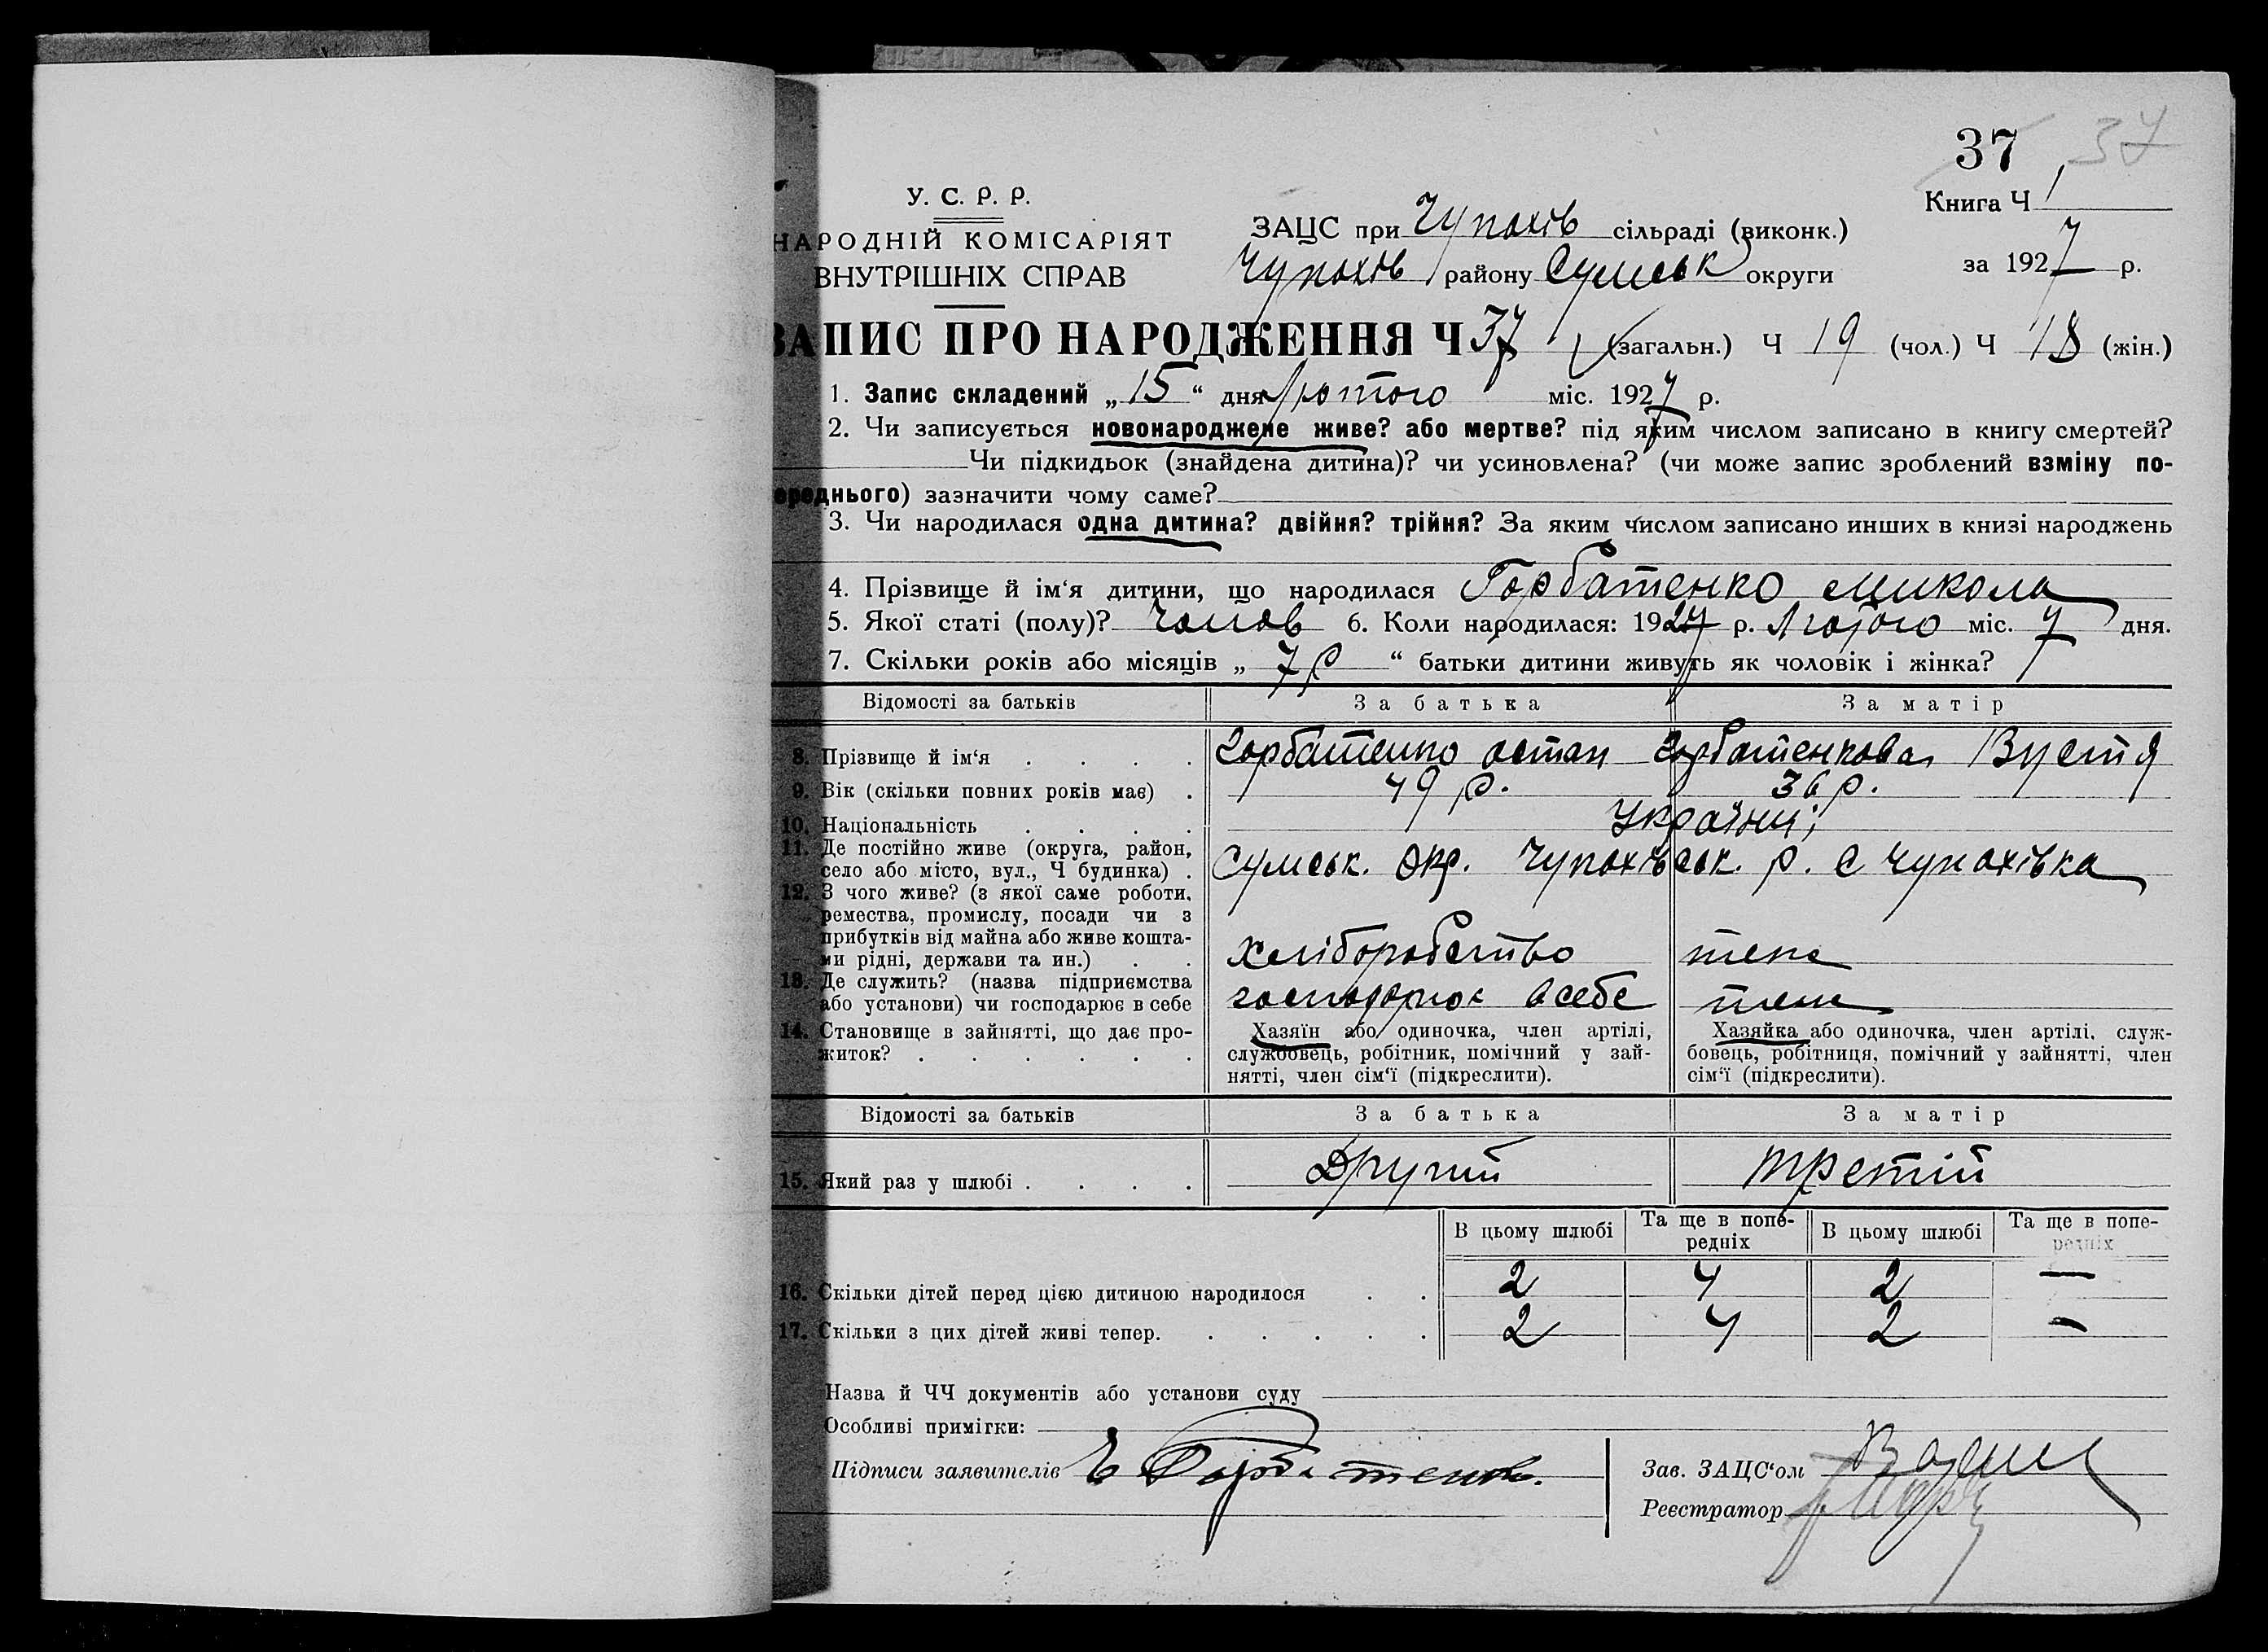 37 37
У. С. Р. Р.
НАРОДНІЙ КОМІСАРІЯТ
ВНУТРІШНІХ СПРАВ
Книга Ч 1
ЗАЦС при Чупахів сільраді (виконк.)
Чупахів району Сумськ округи
за 1927 р.
ЗАПИС ПРО НАРОДЖЕННЯ Ч 37 (загальн.) Ч 19 (чол.) Ч 18 (жін.)
1. Запис складений „15“ дня Лютого міс. 1927 р.
2. Чи записується новонароджене живе? або мертве? під яким числом записано в книгу смертей?
Чи підкидьок (знайдена дитина)? чи усиновлена? (чи може запис зроблений взміну по-
ереднього) зазначити чому саме?
3. Чи народилася одна дитина? двійня? трійня? За яким числом записано инших в книзі народжень
4. Прізвище й ім‘я дитини, що народилася Горбатенко Микола
5. Якої статі (полу)? Чолов 6. Коли народилася: 1927 р. Лютого міс. 7 дня.
7. Скільки років або місяців „ 7 р “ батьки дитини живуть як чоловік і жінка?
Відомості за батьків За батька За матір
8. Прізвище й ім‘я . . . . Горбатенко Остап Горбатенкова Вустя
9. Вік (скільки повних років має) . 49 р. 36 р.
10. Національність . . . . Українці
11. Де постійно живе (округа, район,
село або місто, вул., Ч будинка) . Сумськ. Окр. Чупахівськ. р. с Чупахівка
12. З чого живе? (з якої саме роботи,
ремества, промислу, посади чи з
прибутків від майна або живе кошта-
ми рідні, держави та ин.) . . Хліборобство теж
13. Де служить? (назва підприємства
або установи) чи господарює в себе господарює в себе теж
14. Становище в зайнятті, що дає про-
житок? . . . . . .
Хазяїн або одиночка, член артілі,
службовець, робітник, помічний у зай-
нятті, член сім‘ї (підкреслити).
Хазяйка або одиночка, член артілі, служ-
бовець, робітниця, помічний у зайнятті, член
сім‘ї (підкреслити).
Відомості за батьків За батька За матір
15. Який раз у шлюбі . . . . Другий третій
В цьому шлюбі Та ще в попе-
редніх В цьому шлюбі Та ще в попе-
редніх
16. Скільки дітей перед цією дитиною народилося . . 2 4 2 —
17. Скільки з цих дітей живі тепер. . . . . . 2 4 2 -
Назва й ЧЧ документів або установи суду
Особливі примітки:
Підписи заявителів Горбатенко.
Зав. ЗАЦС‘ом
Реєстратор